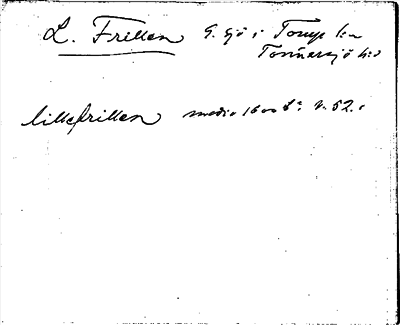 L. Frillen G. sjö i Torup sn
Tönnersjö hd
lillefrillen medio 1600 t. n. 52.